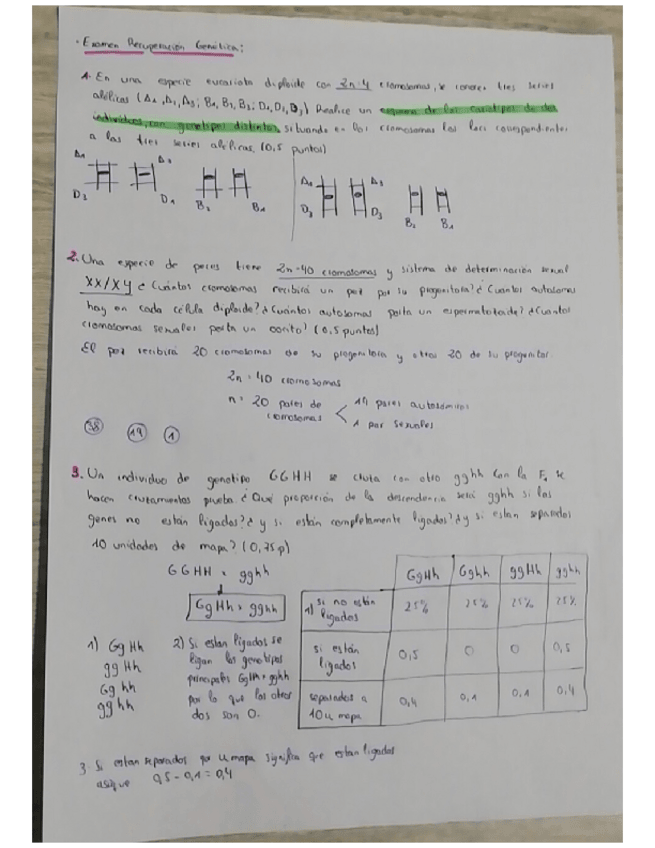 · Examen Recuperación Genética:
1. En una especie eucariota diploide con 2n=4 cromosomas, se conocen tres series
alélicas (A1, A2, A3; B1, B2, B3; D1, D2, D3) Realice un esquema de los cariotipos de dos
individuos, con genotipos distintos, situando en los cromosomas los loci correspondientes
a las tres series alélicas. (0,5 puntos)
D2 D1 B2 B1
D3 D3 B2 B1
2. Una especie de peces tiene 2n=40 cromosomas y sistema de determinación sexual
XX/XY ¿Cuántos cromosomas recibirá un pez por su progenitora? ¿Cuántos autosomas
hay en cada célula diploide? ¿Cuántos autosomas porta un espermatozoide? ¿Cuantos
cromosomas sexuales porta un oocito? (0,5 puntos)
El pez recibirá 20 cromosomas de su progenitora y otros 20 de su progenitor
2n = 40 cromosomas
n = 20 pares de 19 pares autosómicos
cromosomas 1 par sexuales
38 19 1
3. Un individuo de genotipo GGHH se cruza con otro gghh con la F1 se
hacen cruzamientos prueba ¿Qué proporción de la descendencia será gghh si los
genes no están ligados? ¿y si están completamente ligados? ¿y si estan separados
10 unidades de mapa? (0,75p)
GGHH x gghh
GgHh x gghh
GgHh Gghh ggHh gghh
1) si no están ligados 25% 25% 25% 25%
si están ligados 0,5 0 0 0,5
separados a 10 u mapa 0,4 0,1 0,1 0,4
1) GgHh
ggHh
Gghh
gghh
2) Si estan ligados se
ligan los genotipos
principales GgHh y gghh
por lo que los otros
dos son 0.
3. Si estan separados por u mapa significa que estan ligados
asique 0,5 - 0,1 = 0,4